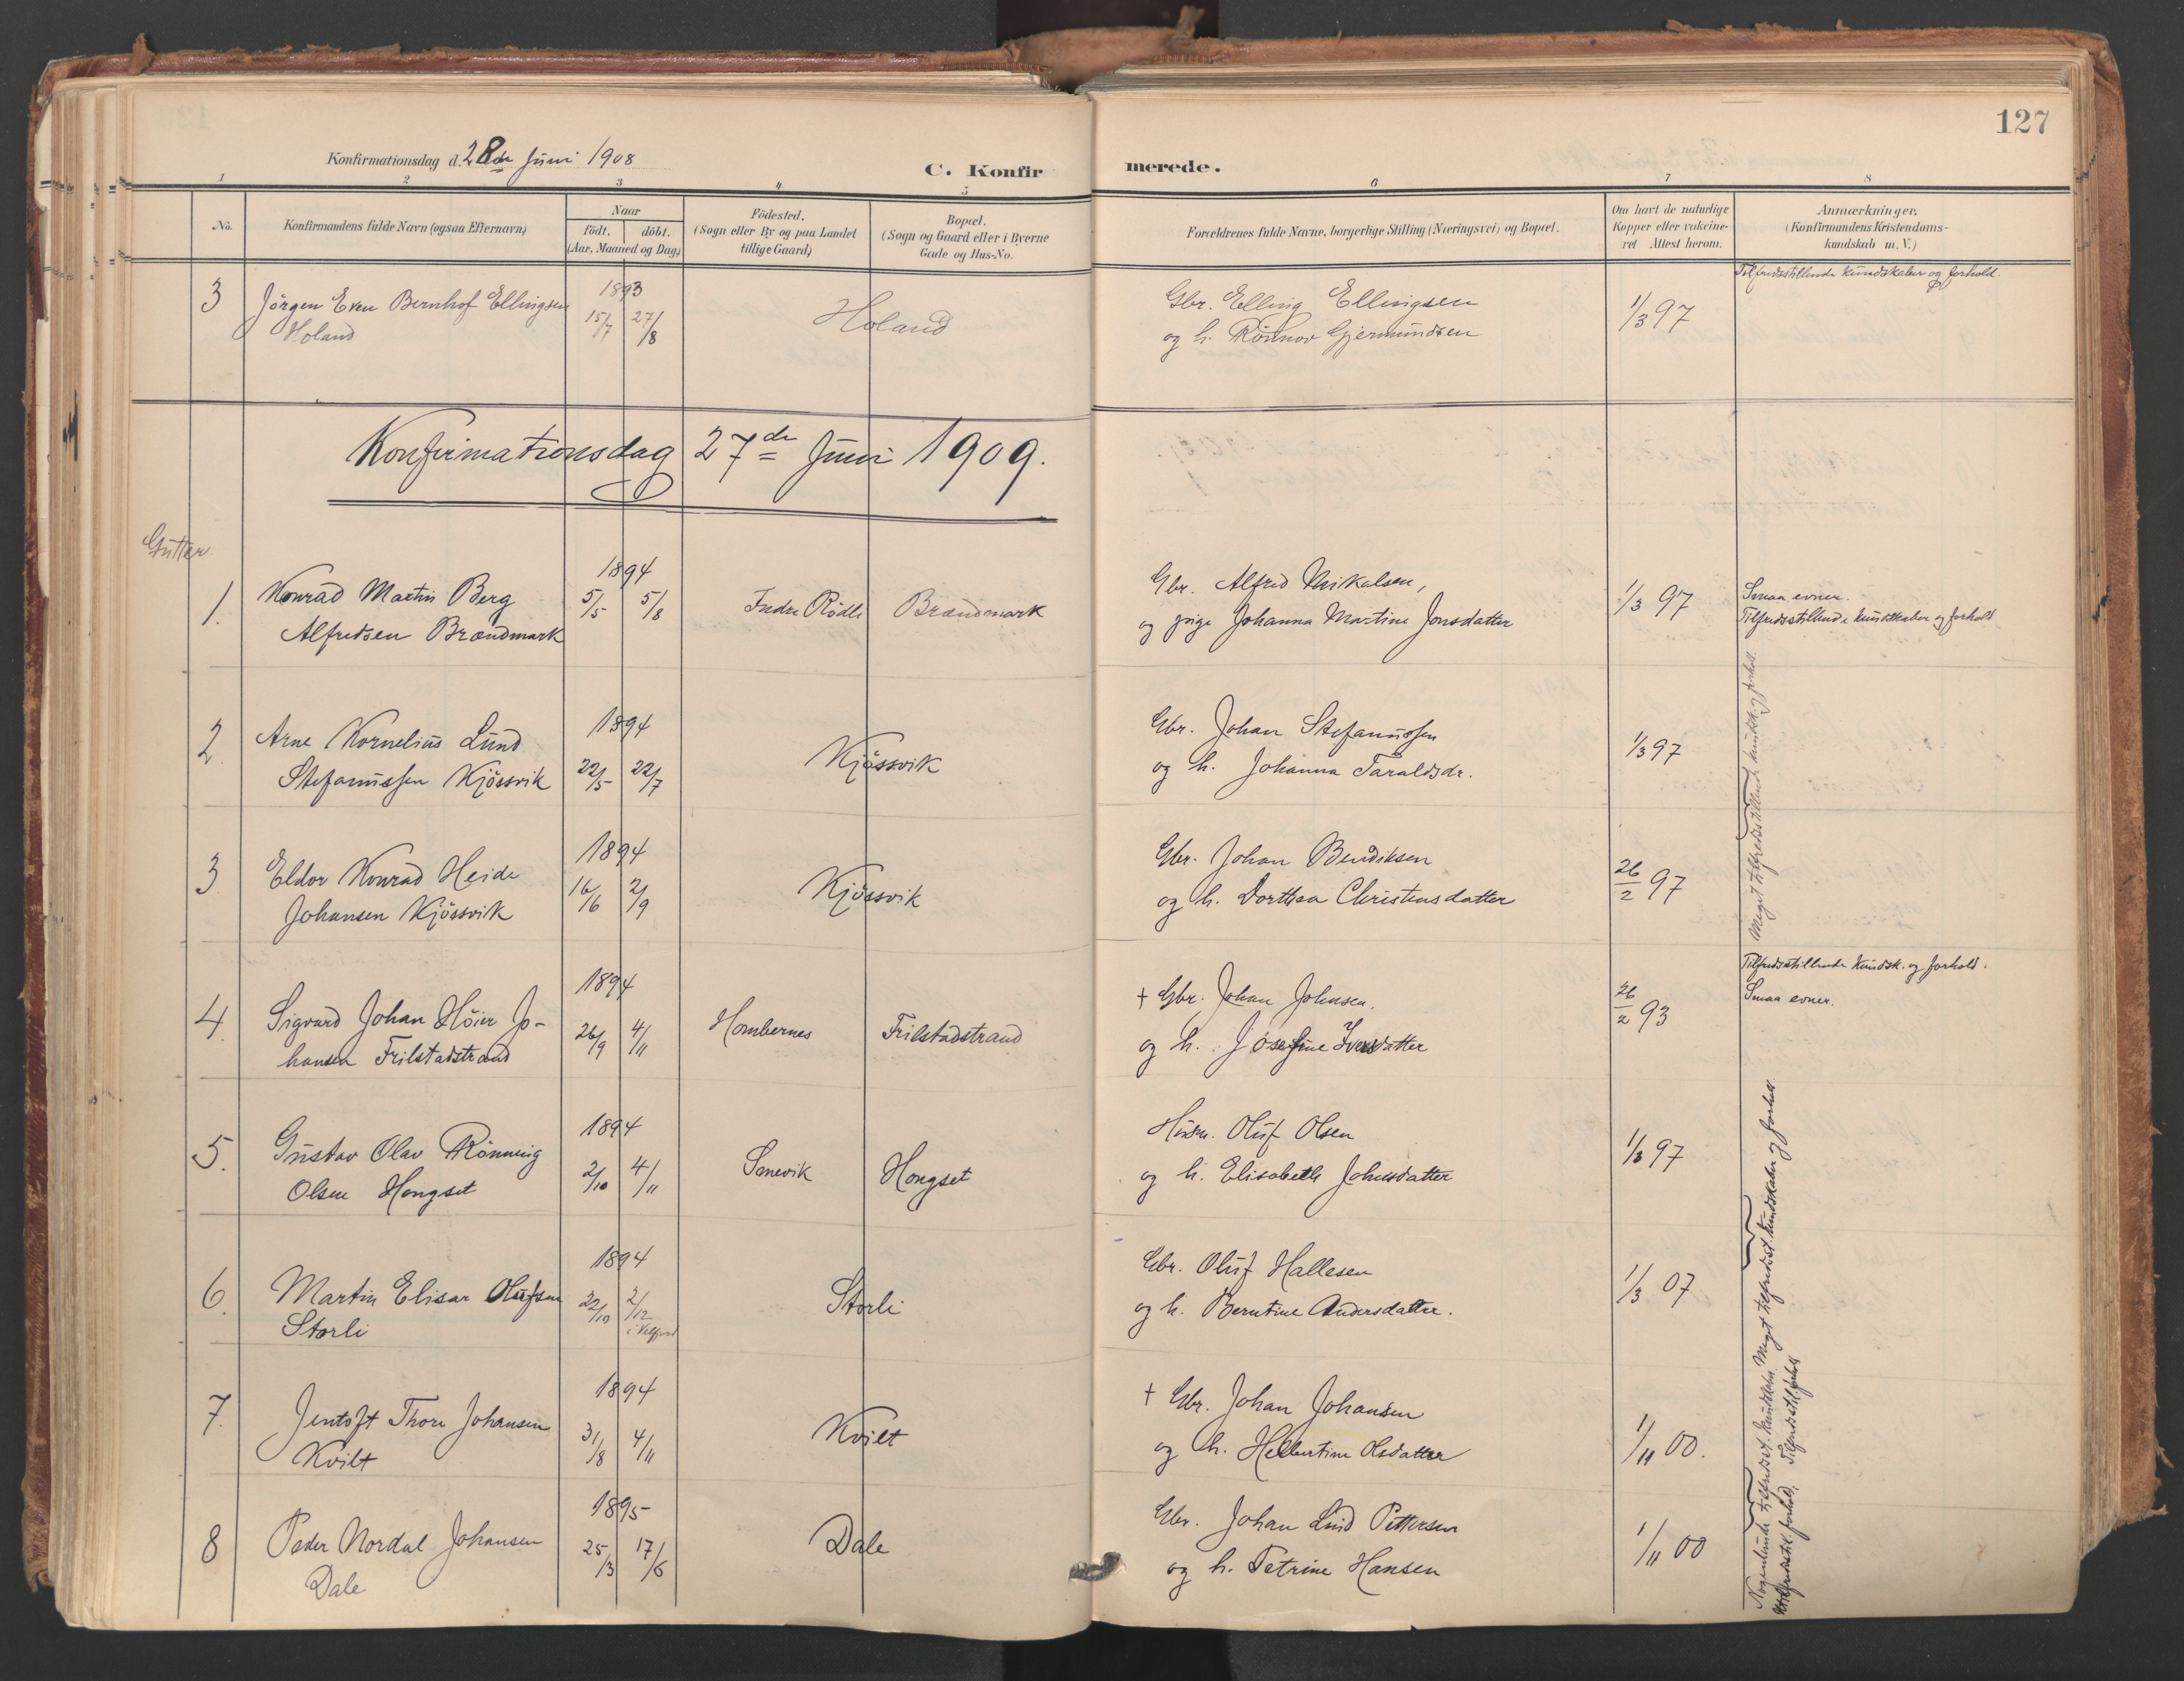 127
Konfirmationsdag d. 28de Juni 1908
C. Konfirmerede.
1 2 3 4 5 6 7 8
No.
Konfirmandens fulde Navn (ogsaa Efternavn)
Naar
födt. döbt.
(Aar, Maaned og Dag)
Födested.
(Sogn eller By og paa Landet
tillige Gaard)
Bopæl.
(Sogn og Gaard eller i Byerne
Gade og Hus-No.
Forældrenes fulde Navne, borgerlige Stilling (Næringsvei) og Bopæl.
Om havt de naturlige
Kopper eller vakcine-
ret Attest herom.
Anmærkninger.
(Konfirmandens Kristendoms-
kundskab m. V.)
3 Jörgen Even Bernhof Ellingsen
Holand
1893
15/7 27/8
Holand
Gbr. Elling Ellingsen
og h. Rönnov Gjermundsen
1/3 97
Tilfredsstillende kundskaber og forhold.
Konfirmationsdag 27de Juni 1909.
Gutter
1. Konrad Martin Berg
Alfredsen Brændmark
1894
5/5 5/8
Indre Rödli Brændmark
Gbr. Alfred Mikalsen,
og pige Johanna Martine Jonsdatter
1/3 97
Smaa evner.
Tilfredsstillende kundskaber og forhold
2 Arne Kornelius Lund
Stefanussen Kjössvik
1894
22/5 22/7
Kjössvik
Gbr. Johan Stefanussen
og h. Johanna Taraldsdr.
1/3 97
3 Eldor Konrad Heide
Johansen Kjössvik
1894
16/6 2/9
Kjössvik
Gbr. Johan Bendiksen
og h. Dorthea Christensdatter
26/2 97
Meget tilfredsstillende kundsk. og forhold.
4. Sigvard Johan Höier Jo-
hansen Frilstadstrand
1894
26/9 4/11
Hombernes Frilstadstrand
+ Gbr. Johan Johnsen.
og h. Josefine Iversdatter
26/2 93
Tilfredsstillende kundsk. og forhold.
Smaa evner.
5. Gustav Olav Rönning
Olsen Hongset
1894
2/10 4/11
Smevik Hongset
Husm. Oluf Olsen
og h. Elisabeth Johnsdatter
1/3 97
6. Martin Elisar Olufsen
Storli
1894
22/10 2/12
i Velfjord
Storli
Gbr. Oluf Hallesen
og h. Berntine Andersdatter.
1/3 07
Meget tilfredsst. kundskaber og forhold.
7. Jentoft Thore Johansen
Kvilt
1894
31/8 4/11
Kvilt
+ Gbr. Johan Johansen
og h. Helbertine Olsdatter
1/11 00.
8 Peder Nordal Johansen
Dale
1895
25/3 17/6
Dale
Gbr. Johan Lind Pettersen
og h. Petrine Hansen
1/11 00
Nogenlunde tilfredsst. kundskaber